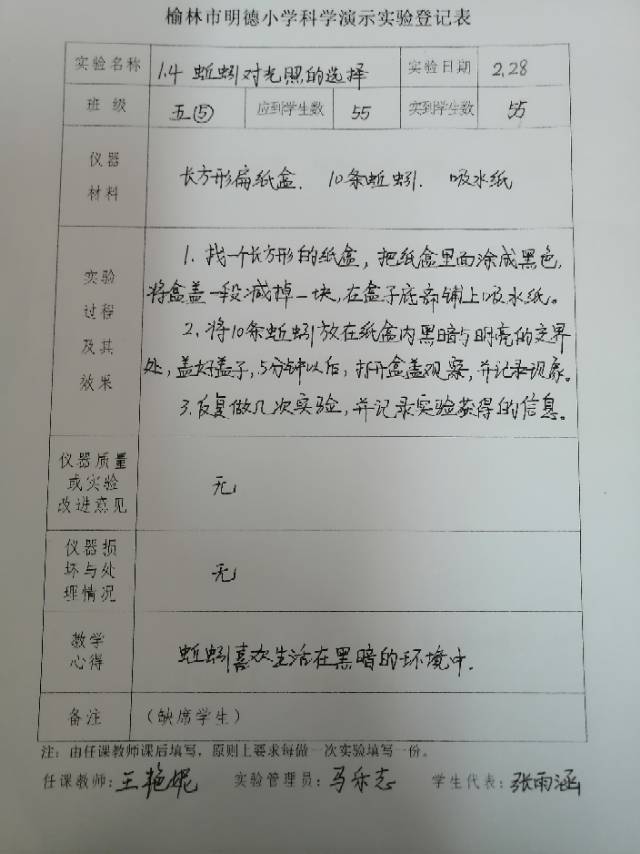 榆林市明德小学科学演示实验登记表
实验名称 1.4 蚯蚓对光照的选择 实验日期 2.28
班级 五⑤ 应到学生数 55 实到学生数 55
仪器
材料
长方形扁纸盒. 10条蚯蚓. 吸水纸
实验
过程
及其
效果
1. 找一个长方形的纸盒，把纸盒里面涂成黑色，
将盒盖一段减掉一块，在盒子底部铺上吸水纸。
2. 将10条蚯蚓放在纸盒内黑暗与明亮的交界
处，盖好盖子，5分钟以后，打开盒盖观察，并记录现象。
3. 反复做几次实验，并记录实验获得的信息。
仪器质量
或实验
改进意见
无
仪器损
坏与处
理情况
无
教学
心得
蚯蚓喜欢生活在黑暗的环境中.
备注 （缺席学生）
注：由任课教师课后填写，原则上要求每做一次实验填写一份。
任课教师：王艳妮 实验管理员：马乐志 学生代表：张雨涵